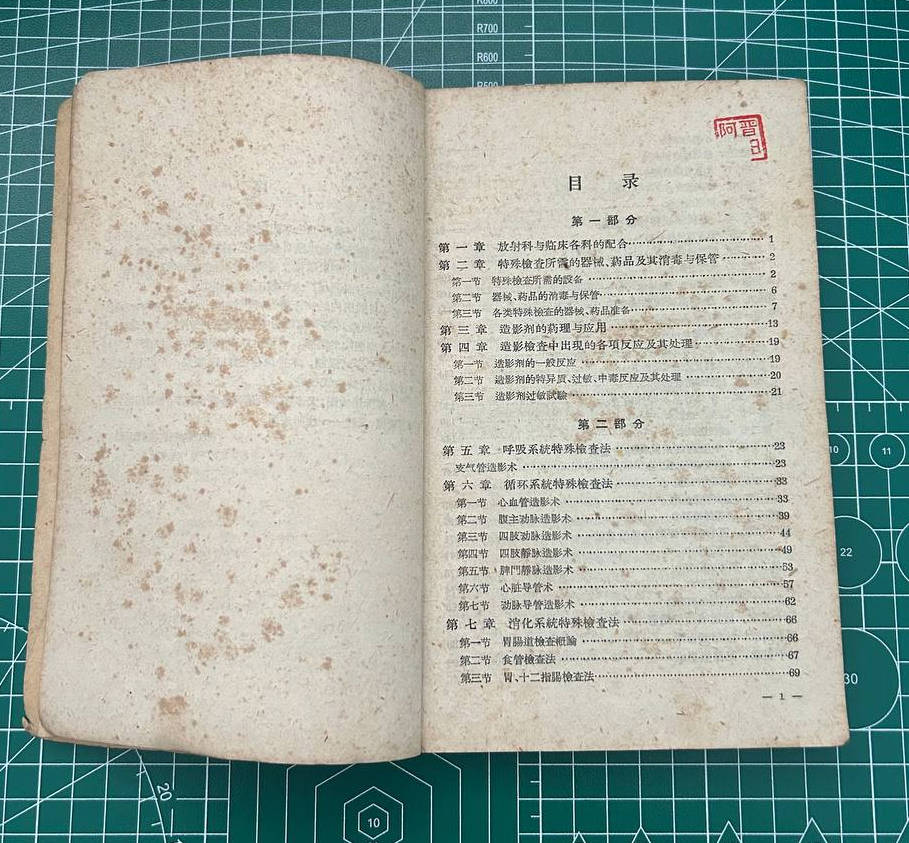 R700
R600
R500
阿晋
目 录
第一部分
第一章 放射科与临床各科的配合 1
第二章 特殊檢查所需的器械、葯品及其消毒与保管 2
第一节 特殊檢查所需的設备 2
第二节 器械、葯品的消毒与保管 6
第三节 各类特殊檢查的器械、葯品准备 7
第三章 造影剂的葯理与应用 13
第四章 造影檢查中出現的各項反应及其处理 19
第一节 造影剂的一般反应 19
第二节 造影剂的特异质、过敏、中毒反应及其处理 20
第三节 造影剂过敏試驗 21
第二部分
第五章 呼吸系統特殊檢查法 23
支气管造影术 23
第六章 循环系統特殊檢查法 33
第一节 心血管造影术 33
第二节 腹主动脉造影术 39
第三节 四肢动脉造影术 44
第四节 四肢靜脉造影术 49
第五节 脾門靜脉造影术 53
第六节 心脏导管术 57
第七节 动脉导管造影术 62
第七章 消化系統特殊檢查法 66
第一节 胃腸道檢查概論 66
第二节 食管檢查法 67
第三节 胃、十二指腸檢查法 69
— 1 —
10
11
22
30
20
10